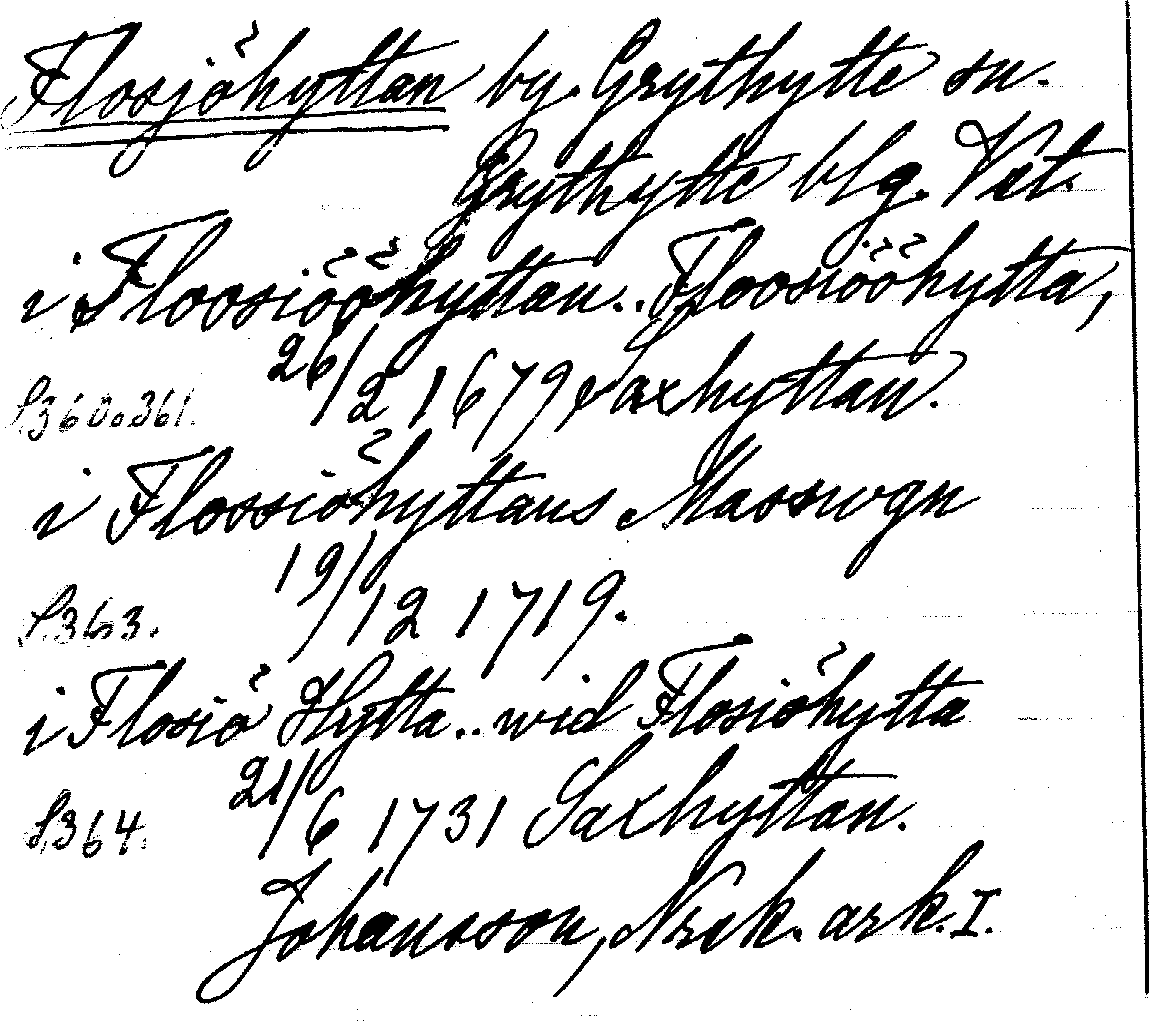 Flosjöhyttan by. Grythytte sn.
Grythytte blg. Vst.
i Floosiööhyttan.. Floosiööhytta,
S.360 o. 361. 26/2 1679 Saxhyttan.
i Flossiöhyttans Massvgn
S.363. 19/12 1719.
i Flosiö Hytta.. wid Flosiöhytta
S.364. 21/6 1731 Saxhyttan.
Johansson, Nrck. ark. I.